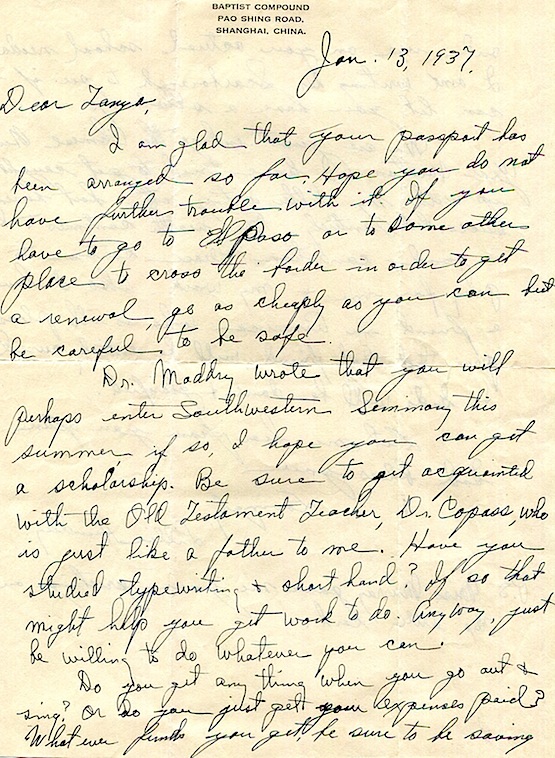 BAPTIST COMPOUND
PAO SHING ROAD,
SHANGHAI, CHINA.
Jan. 13, 1937.
Dear Tanya,
I am glad that your passport has
been arranged so far. Hope you do not
have further trouble with it. If you
have to go to El Paso or to some other
place to cross the border in order to get
a renewal, go as cheaply as you can but
be careful to be safe.
Dr. Maddry wrote that you will
perhaps enter Southwestern Seminary this
summer, if so, I hope you can get
a scholarship. Be sure to get acquainted
with the Old Testament Teacher, Dr. Copass, who
is just like a father to me. Have you
studied typewriting & short hand? If so that
might help you get work to do. Anyway, just
be willing to do whatever you can.
Do you get any thing when you go out &
sing? Or do you just get your expenses paid?
What ever funds you get be sure to be saving